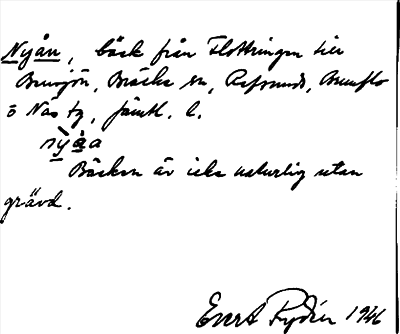 Nyån, bäck från Flottringen till
Bensjön, Bräcke sn, Refsunds, Brunflo
o Näs tg, Jämtl. l.
nỳa̓a
Bäcken är icke naturlig utan
grävd.
Evert Rydén 1946